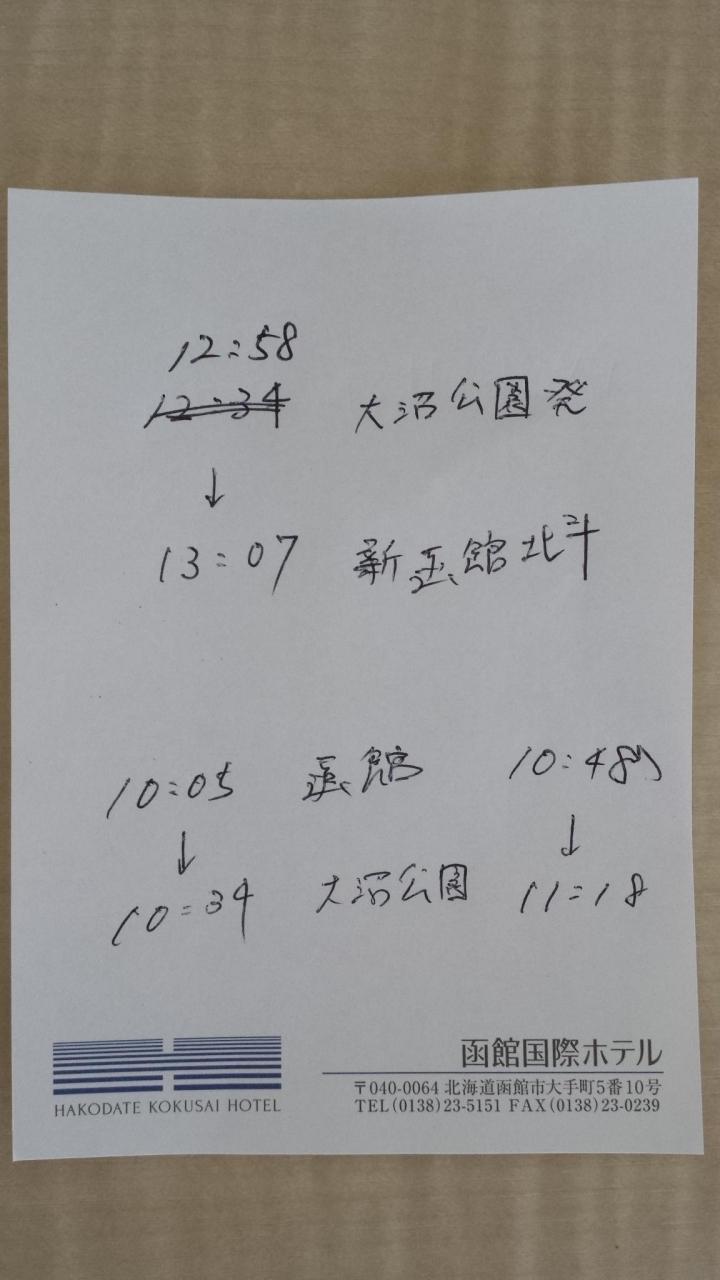 12:58
12:34 大沼公園発
↓
13:07 新函館北斗
10:05 函館 10:48
↓ ↓
10:34 大沼公園 11:18
函館国際ホテル
〒040-0064 北海道函館市大手町5番10号
HAKODATE KOKUSAI HOTEL TEL(0138)23-5151 FAX(0138)23-0239